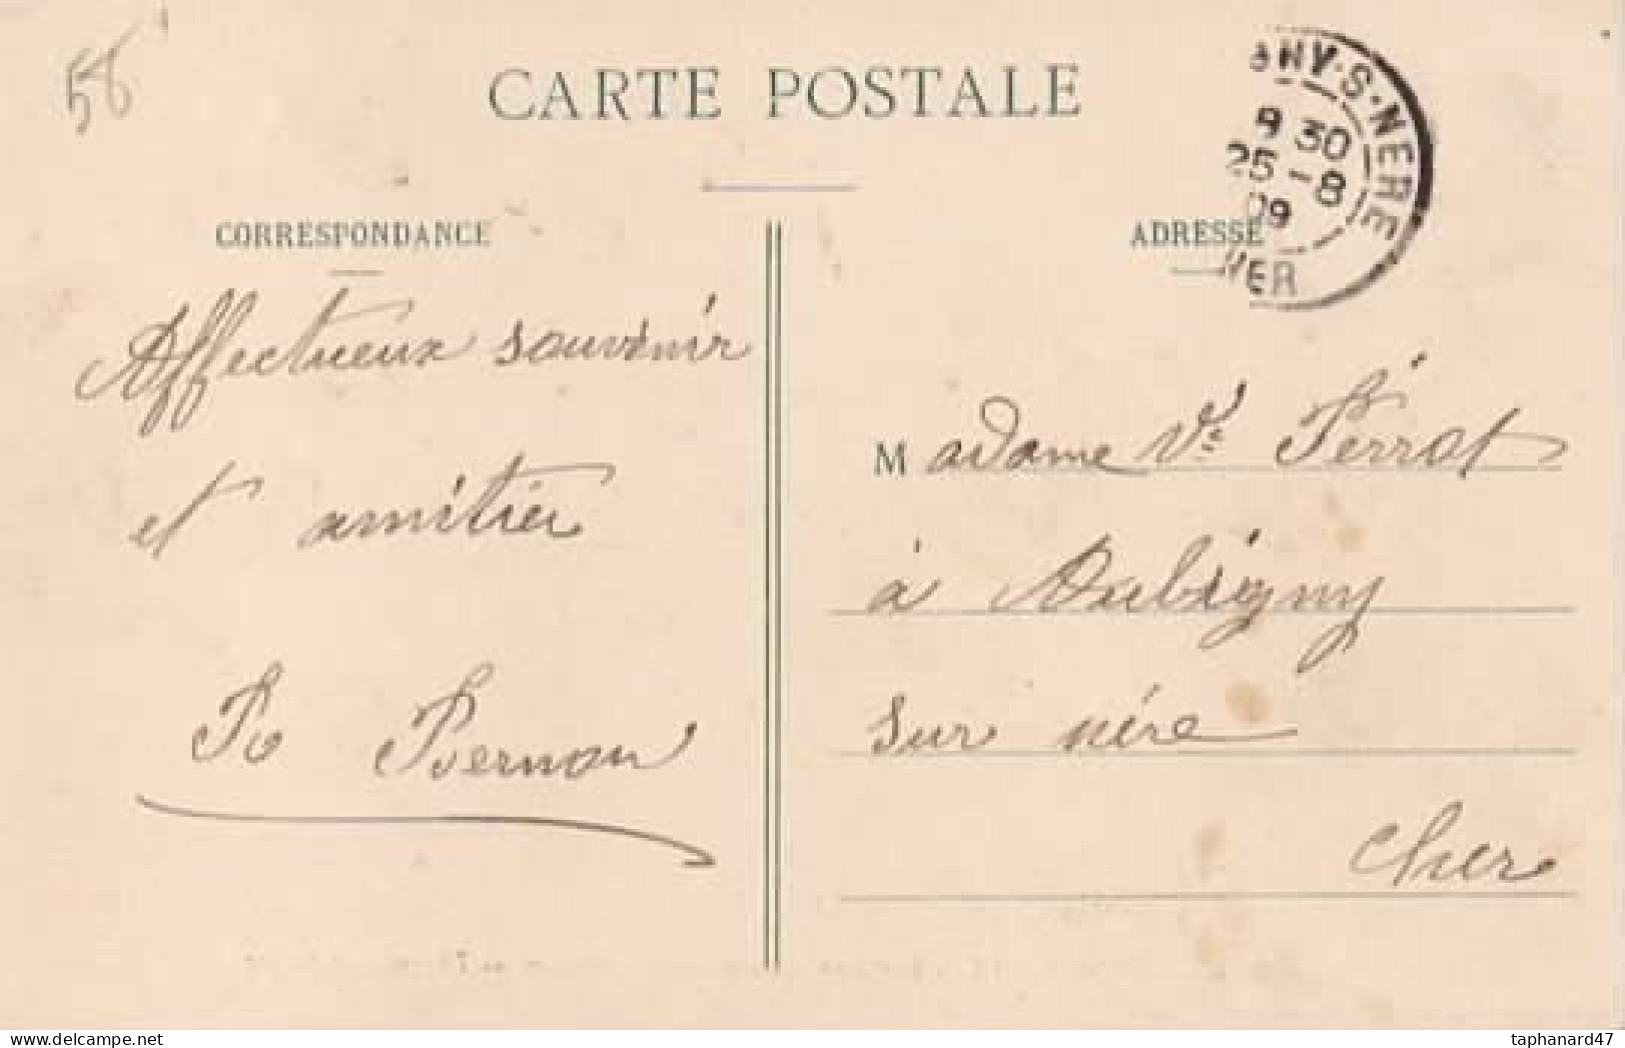 58
CARTE POSTALE
NY-S-NERE
8 30
25-8
09
HER
CORRESPONDANCE
ADRESSE
Affectueux souvenir
et amitier
Madame Vve Perrot
à Aubigny
sur nère
Cher
taphanard47